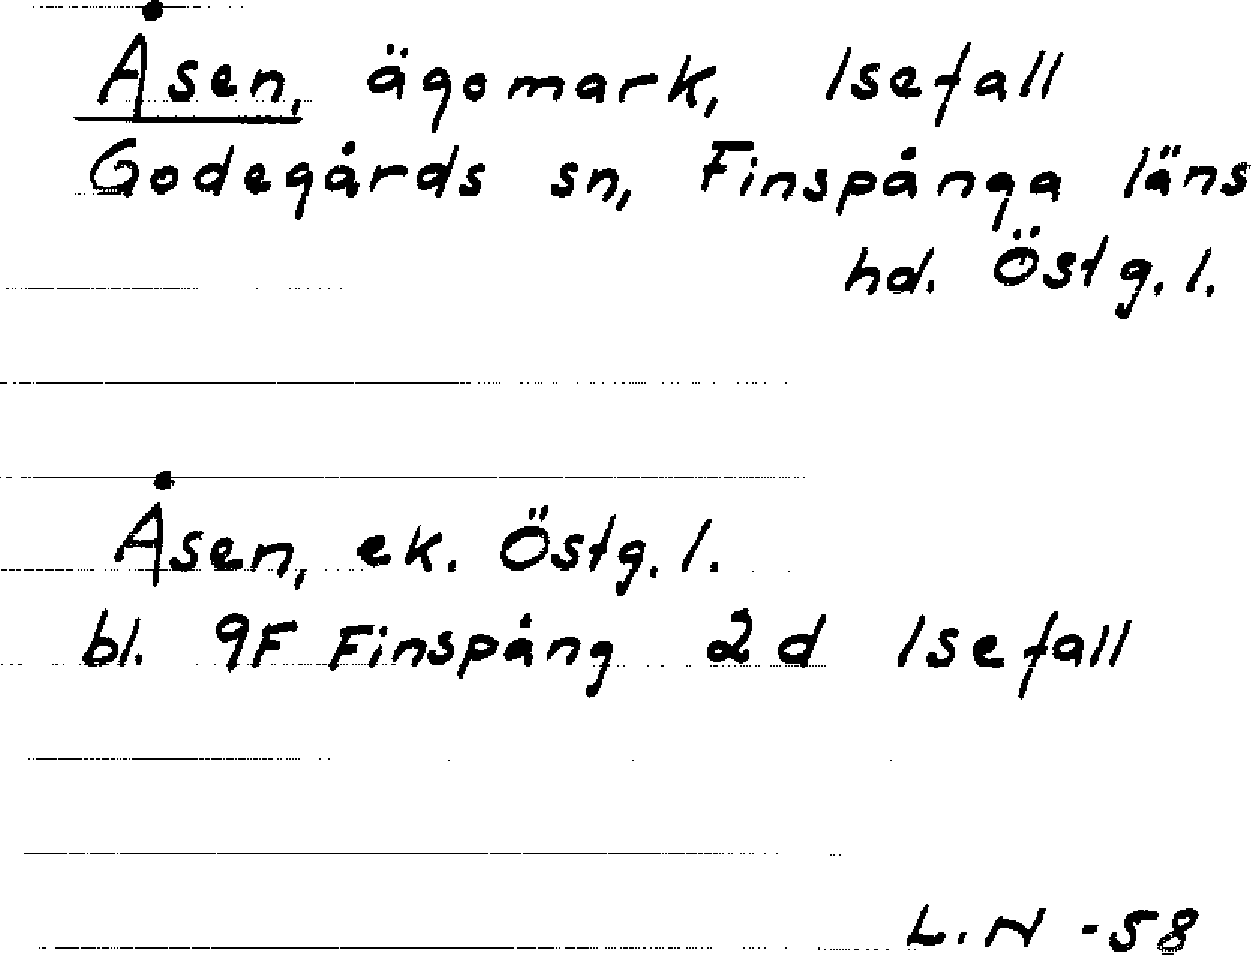 Åsen, ägomark, Isefall
Godegårds sn, Finspånga läns
hd. Östg. l.
Åsen, ek. Östg. l.
bl. 9F Finspång 2d Isefall
L. N -58